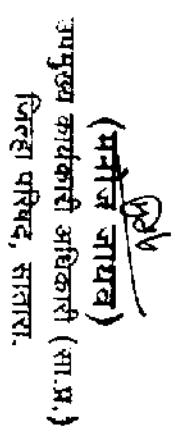 (मनोज जाधव)
उपमुख्य कार्यकारी अधिकारी (सा.प्र.)
जिल्हा परिषद, सातारा.